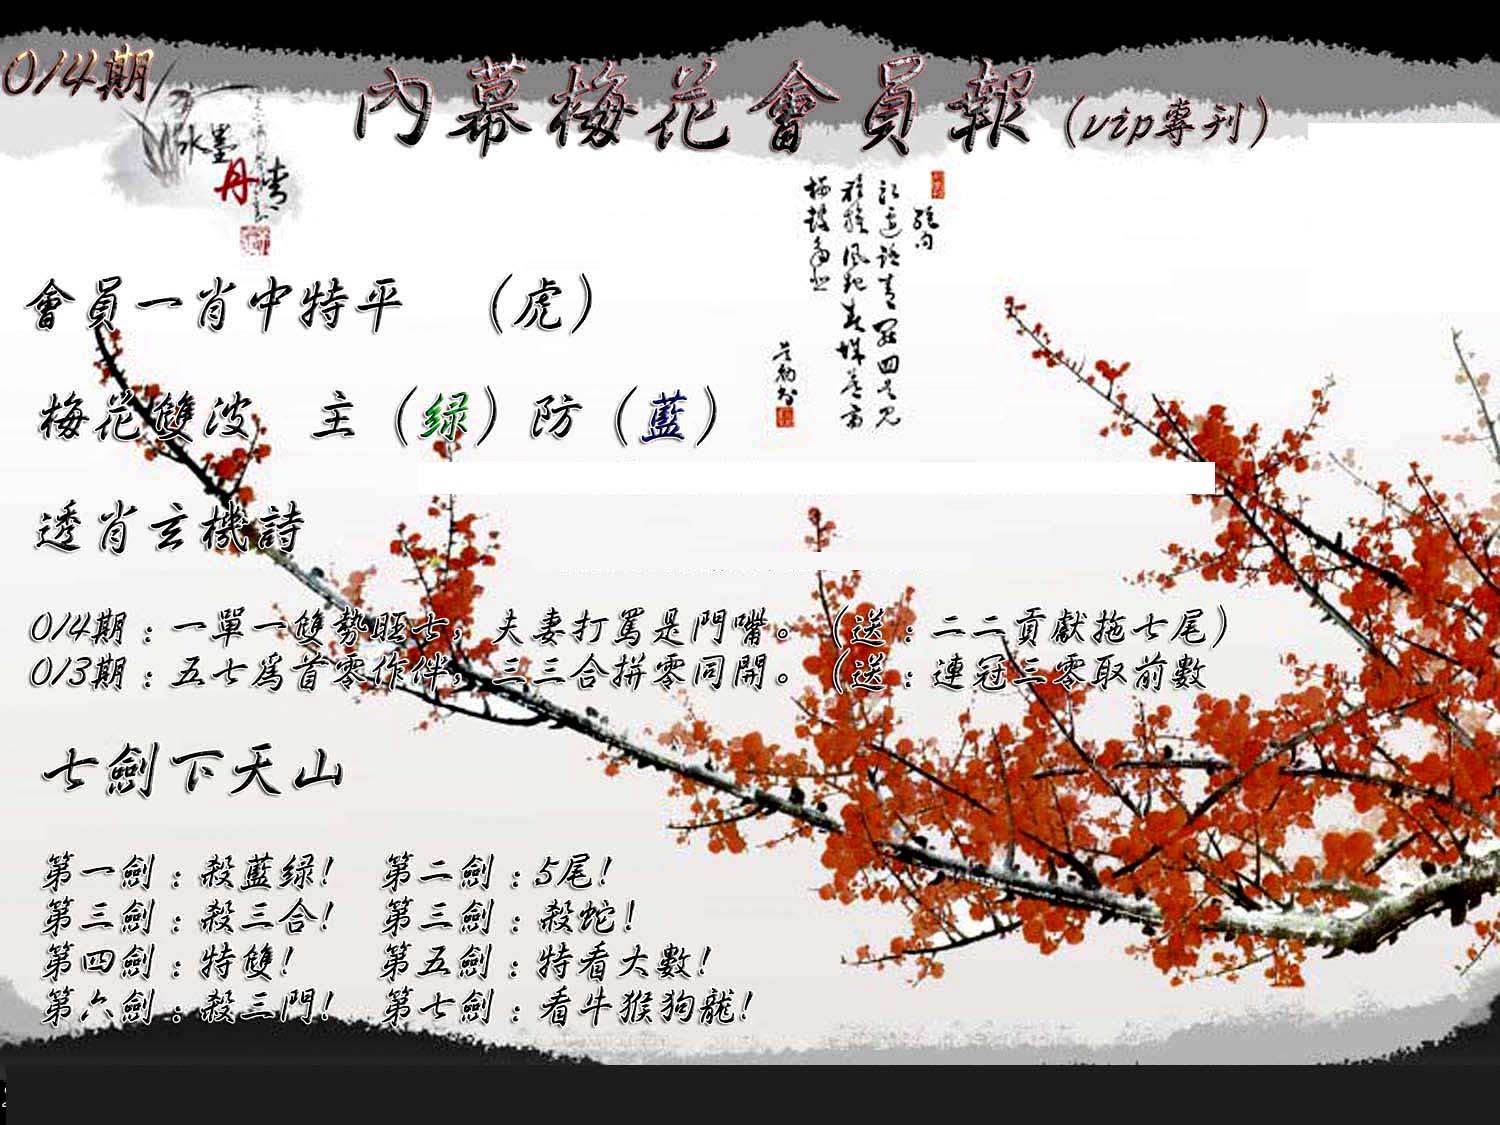 014期
內幕梅花會員報(vip專刊)
水墨
丹青
會員一肖中特平 (虎)
梅花雙波 主(绿)防(藍)
透肖玄機詩
014期:一單一雙勢旺七,夫妻打罵是鬥嘴。(送:二二貢獻拖七尾)
013期:五七爲首零作伴,三三合拼零同開。(送:連冠三零取前數
七劍下天山
第一劍:殺藍绿! 第二劍:5尾!
第三劍:殺三合! 第三劍:殺蛇!
第四劍:特雙! 第五劍:特看大數!
第六劍:殺三門! 第七劍:看牛猴狗龍!